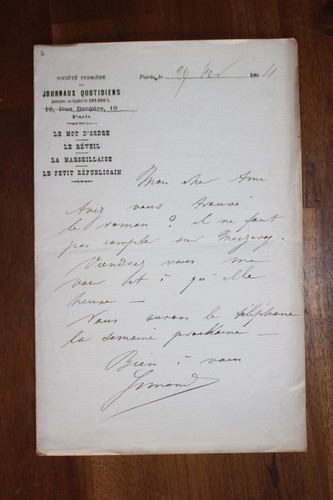 SOCIÉTÉ FERMIÈRE
DES
JOURNAUX QUOTIDIENS
19, Rue Bergère, 19
Paris
LE MOT D'ORDRE
LE RÉVEIL
LA MARSEILLAISE
LE PETIT RÉPUBLICAIN
Paris, le 188
Mon cher Ami
Avez vous trouvé
le roman ? il ne faut
pas compter sur Maizeroy.
Viendrez vous me
voir et à qu'elle
heure —
Nous aurons le téléphone
la semaine prochaine —
Bien à vous